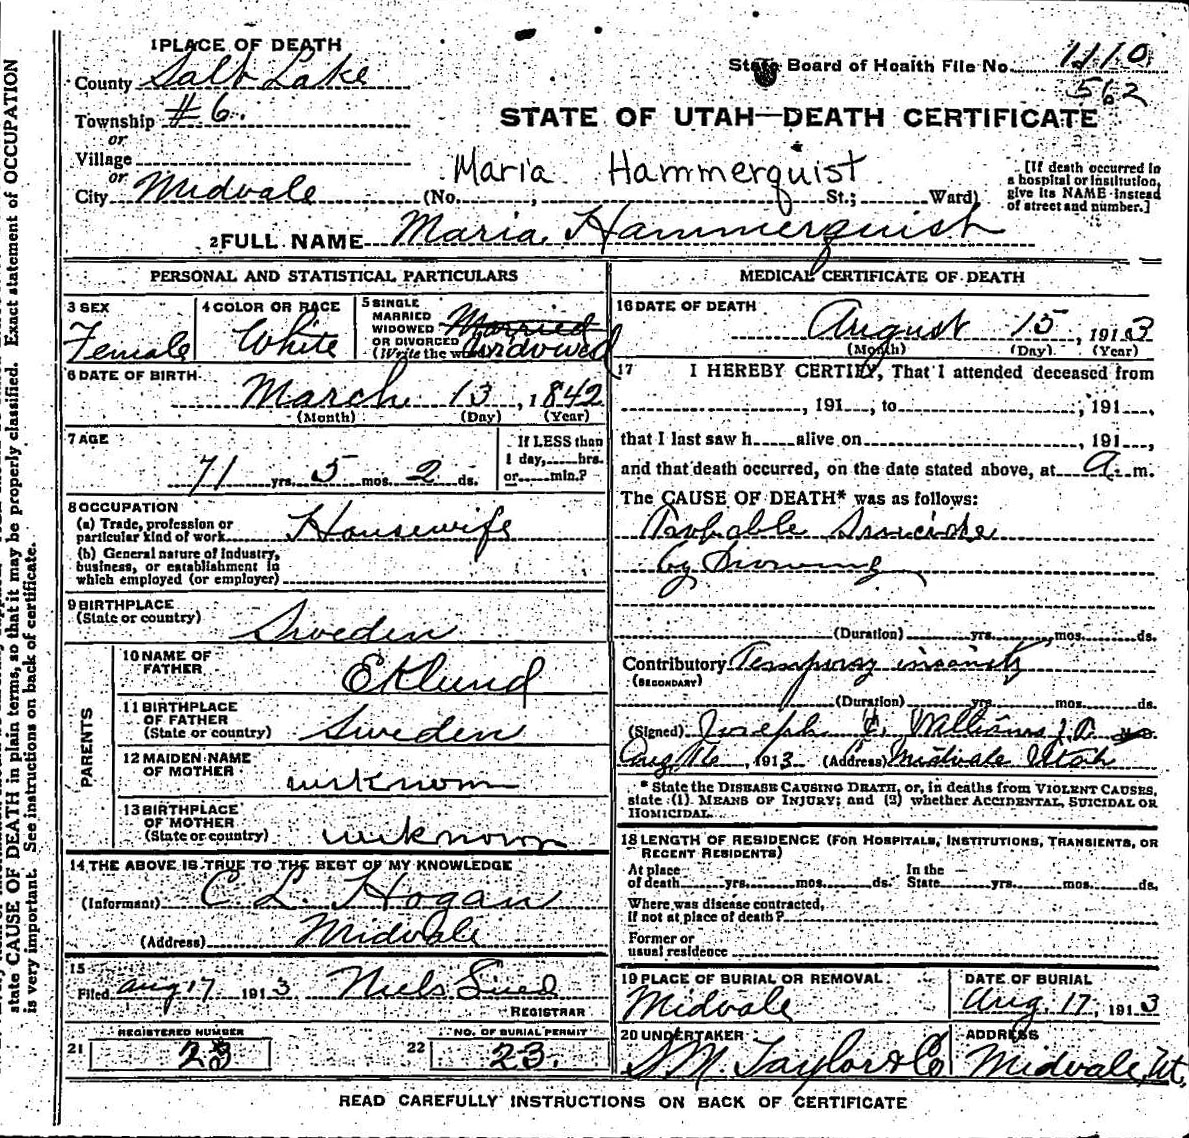 state CAUSE OF DEATH in plain terms, so that it may be properly classified. Exact statement of OCCUPATION
is very important. See instructions on back of certificate.
1 PLACE OF DEATH
County Salt Lake
Township #6.
or
Village
or
City Midvale
State Board of Health File No. 1110
562
STATE OF UTAH—DEATH CERTIFICATE
Maria Hammerquist
(No. , St.; Ward)
[If death occurred in
a hospital or institution,
give its NAME instead
of street and number.]
2 FULL NAME Maria Hammerquist
PERSONAL AND STATISTICAL PARTICULARS
3 SEX
Female
4 COLOR OR RACE
White
5 SINGLE
MARRIED
WIDOWED
OR DIVORCED
(Write the w
Married
Widowed
6 DATE OF BIRTH
March 13, 1842
(Month) (Day) (Year)
7 AGE
71 yrs. 5 mos. 2 ds.
If LESS than
1 day, hrs.
or min.?
8 OCCUPATION
(a) Trade, profession or
particular kind of work Housewife
(b) General nature of industry,
business, or establishment in
which employed (or employer)
9 BIRTHPLACE
(State or country)
Sweden
PARENTS
10 NAME OF
FATHER
Eklund
11 BIRTHPLACE
OF FATHER
(State or country) Sweden
12 MAIDEN NAME
OF MOTHER
unknown
13 BIRTHPLACE
OF MOTHER
(State or country) unknown
14 THE ABOVE IS TRUE TO THE BEST OF MY KNOWLEDGE
(Informant) C L. Hogan
(Address) Midvale
15
Filed Aug 17 1913 Niels
REGISTRAR
21 REGISTERED NUMBER
23
22 NO. OF BURIAL PERMIT
23.
MEDICAL CERTIFICATE OF DEATH
16 DATE OF DEATH
August 15, 1913
(Month) (Day) (Year)
17 I HEREBY CERTIFY, That I attended deceased from
, 191 , to , 191 ,
that I last saw h alive on , 191 ,
and that death occurred, on the date stated above, at a. m.
The CAUSE OF DEATH* was as follows:
Probable Suicide
by Drowning
(Duration) yrs. mos. ds.
Contributory Temporay insanity
(SECONDARY)
(Duration) yrs. mos. ds.
(Signed) Joseph Williams J.P. M.D.
Aug 16, 1913 (Address) Midvale Utah
* State the DISEASE CAUSING DEATH, or, in deaths from VIOLENT CAUSES,
state (1) MEANS OF INJURY; and (2) whether ACCIDENTAL, SUICIDAL OR
HOMICIDAL.
18 LENGTH OF RESIDENCE (FOR HOSPITALS, INSTITUTIONS, TRANSIENTS, OR
RECENT RESIDENTS)
At place In the
of death yrs. mos. ds. State yrs. mos. ds.
Where was disease contracted,
if not at place of death?
Former or
usual residence
19 PLACE OF BURIAL OR REMOVAL
Midvale
DATE OF BURIAL
Aug. 17, 1913
20 UNDERTAKER
S. M. Taylor & Co
ADDRESS
Midvale, Ut.
READ CAREFULLY INSTRUCTIONS ON BACK OF CERTIFICATE